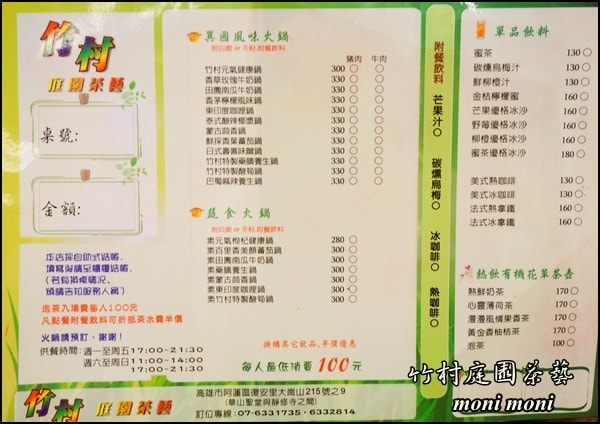 竹村
庭園茶藝
桌號:
金額:
本店採自助式結帳,
填寫後請至櫃檯結帳.
(若有換桌情況,
煩請告知服務人員)
泡茶入場費每人100元
凡點餐附餐飲料可折抵茶水費半價
火鍋請預訂,謝謝!
供餐時間:週一至周五17:00~21:30
週六至周日11:00~14:00
17:00~21:30
異國風味火鍋
附白飯 or 冬粉.附餐飲料
豬肉 牛肉
竹村元氣健康鍋 300 ○ ○
香草玫瑰牛奶鍋 330 ○ ○
田園南瓜牛奶鍋 330 ○ ○
香茅檸檬風味鍋 330 ○ ○
東印度咖哩鍋 330 ○ ○
泰式酸辣椰漿鍋 330 ○ ○
蒙古茴香鍋 330 ○ ○
鮮採香葉蕃茄鍋 330 ○ ○
日式壽喜味噌鍋 330 ○ ○
竹村特製藥膳養生鍋 330 ○ ○
竹村特製酸菊鍋 330 ○ ○
巴蜀麻辣養生鍋 330 ○ ○
蔬食火鍋
附白飯 or 冬粉.附餐飲料
素元氣枸杞健康鍋 280 ○
素百里香美顏蕃茄鍋 330 ○
素田園南瓜牛奶鍋 330 ○
素藥膳養生鍋 330 ○
素蒙古茴香鍋 330 ○
素東印度咖哩鍋 330 ○
素竹村特製酸菊鍋 330 ○
換購其它飲品,半價優惠
每人最低消費 100元
附餐飲料
芒果汁○
碳燻烏梅○
冰咖啡○
熱咖啡○
單品飲料
蜜茶 130 ○
碳燻烏梅汁 130 ○
鮮柳橙汁 130 ○
金桔檸檬蜜 160 ○
芒果優格冰沙 160 ○
野莓優格冰沙 160 ○
柳橙優格冰沙 160 ○
蜜茶優格冰沙 180 ○
美式熱咖啡 130 ○
美式冰咖啡 130 ○
法式熱拿鐵 160 ○
法式冰拿鐵 160 ○
熱飲有機花草茶壺
熱鮮奶茶 170 ○
心靈薄荷茶 170 ○
漫漫風情果香茶 170 ○
黃金香柚桔茶 170 ○
泡茶 100 ○
竹村庭園茶藝
moni moni
竹村
庭園茶藝
高雄市阿蓮區復安里大崗山215號之9
(華山聖堂與靜修寺之間)
訂位專線:07-6331735、6332814